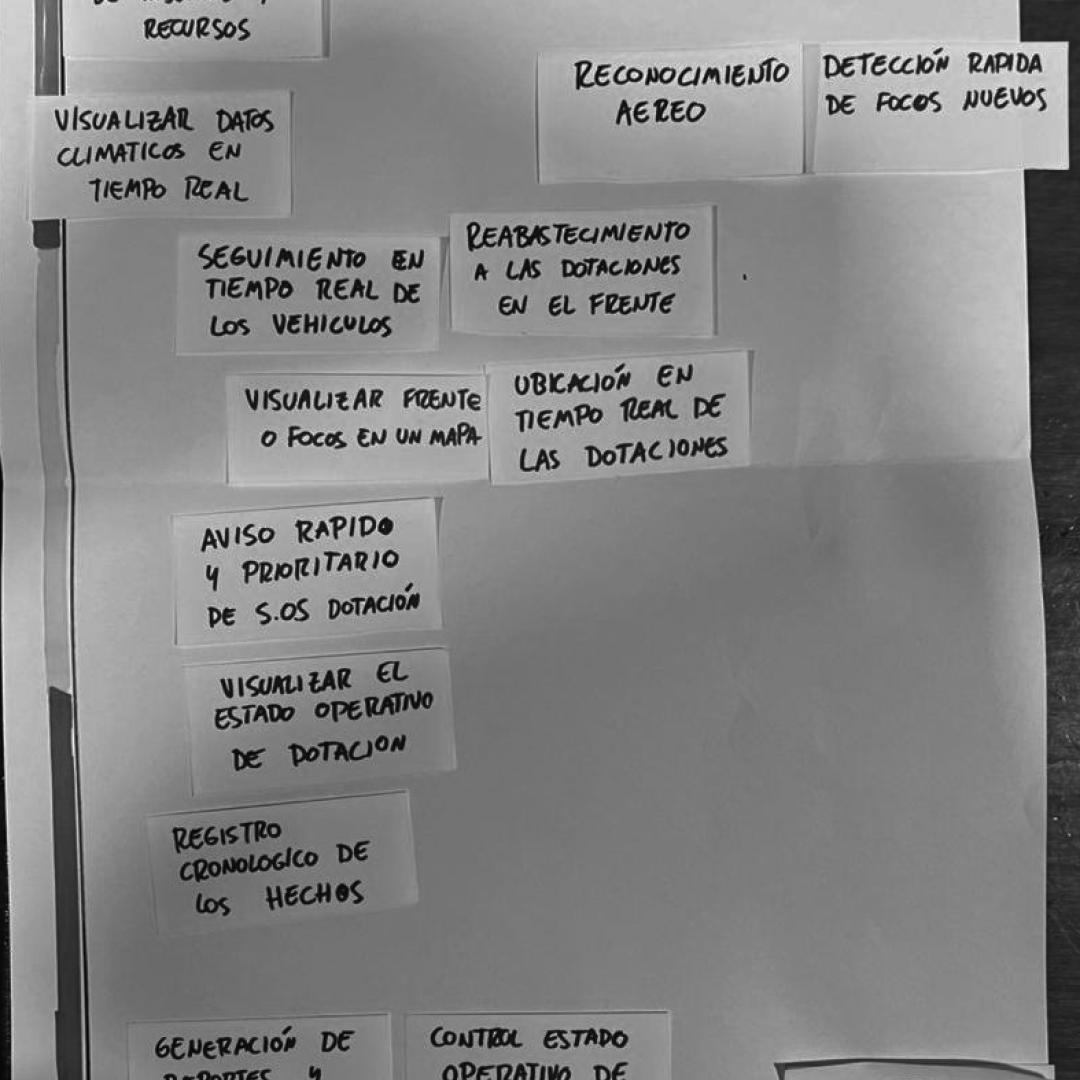 RECURSOS
RECONOCIMIENTO
AEREO
DETECCIÓN RAPIDA
DE FOCOS NUEVOS
VISUALIZAR DATOS
CLIMATICOS EN
TIEMPO REAL
SEGUIMIENTO EN
TIEMPO REAL DE
LOS VEHICULOS
REABASTECIMIENTO
A LAS DOTACIONES
EN EL FRENTE
VISUALIZAR FRENTE
O FOCOS EN UN MAPA
UBICACIÓN EN
TIEMPO REAL DE
LAS DOTACIONES
AVISO RAPIDO
Y PRIORITARIO
DE S.OS DOTACIÓN
VISUALIZAR EL
ESTADO OPERATIVO
DE DOTACION
REGISTRO
CRONOLOGICO DE
LOS HECHOS
GENERACIÓN DE
REPORTES Y
CONTROL ESTADO
OPERATIVO DE